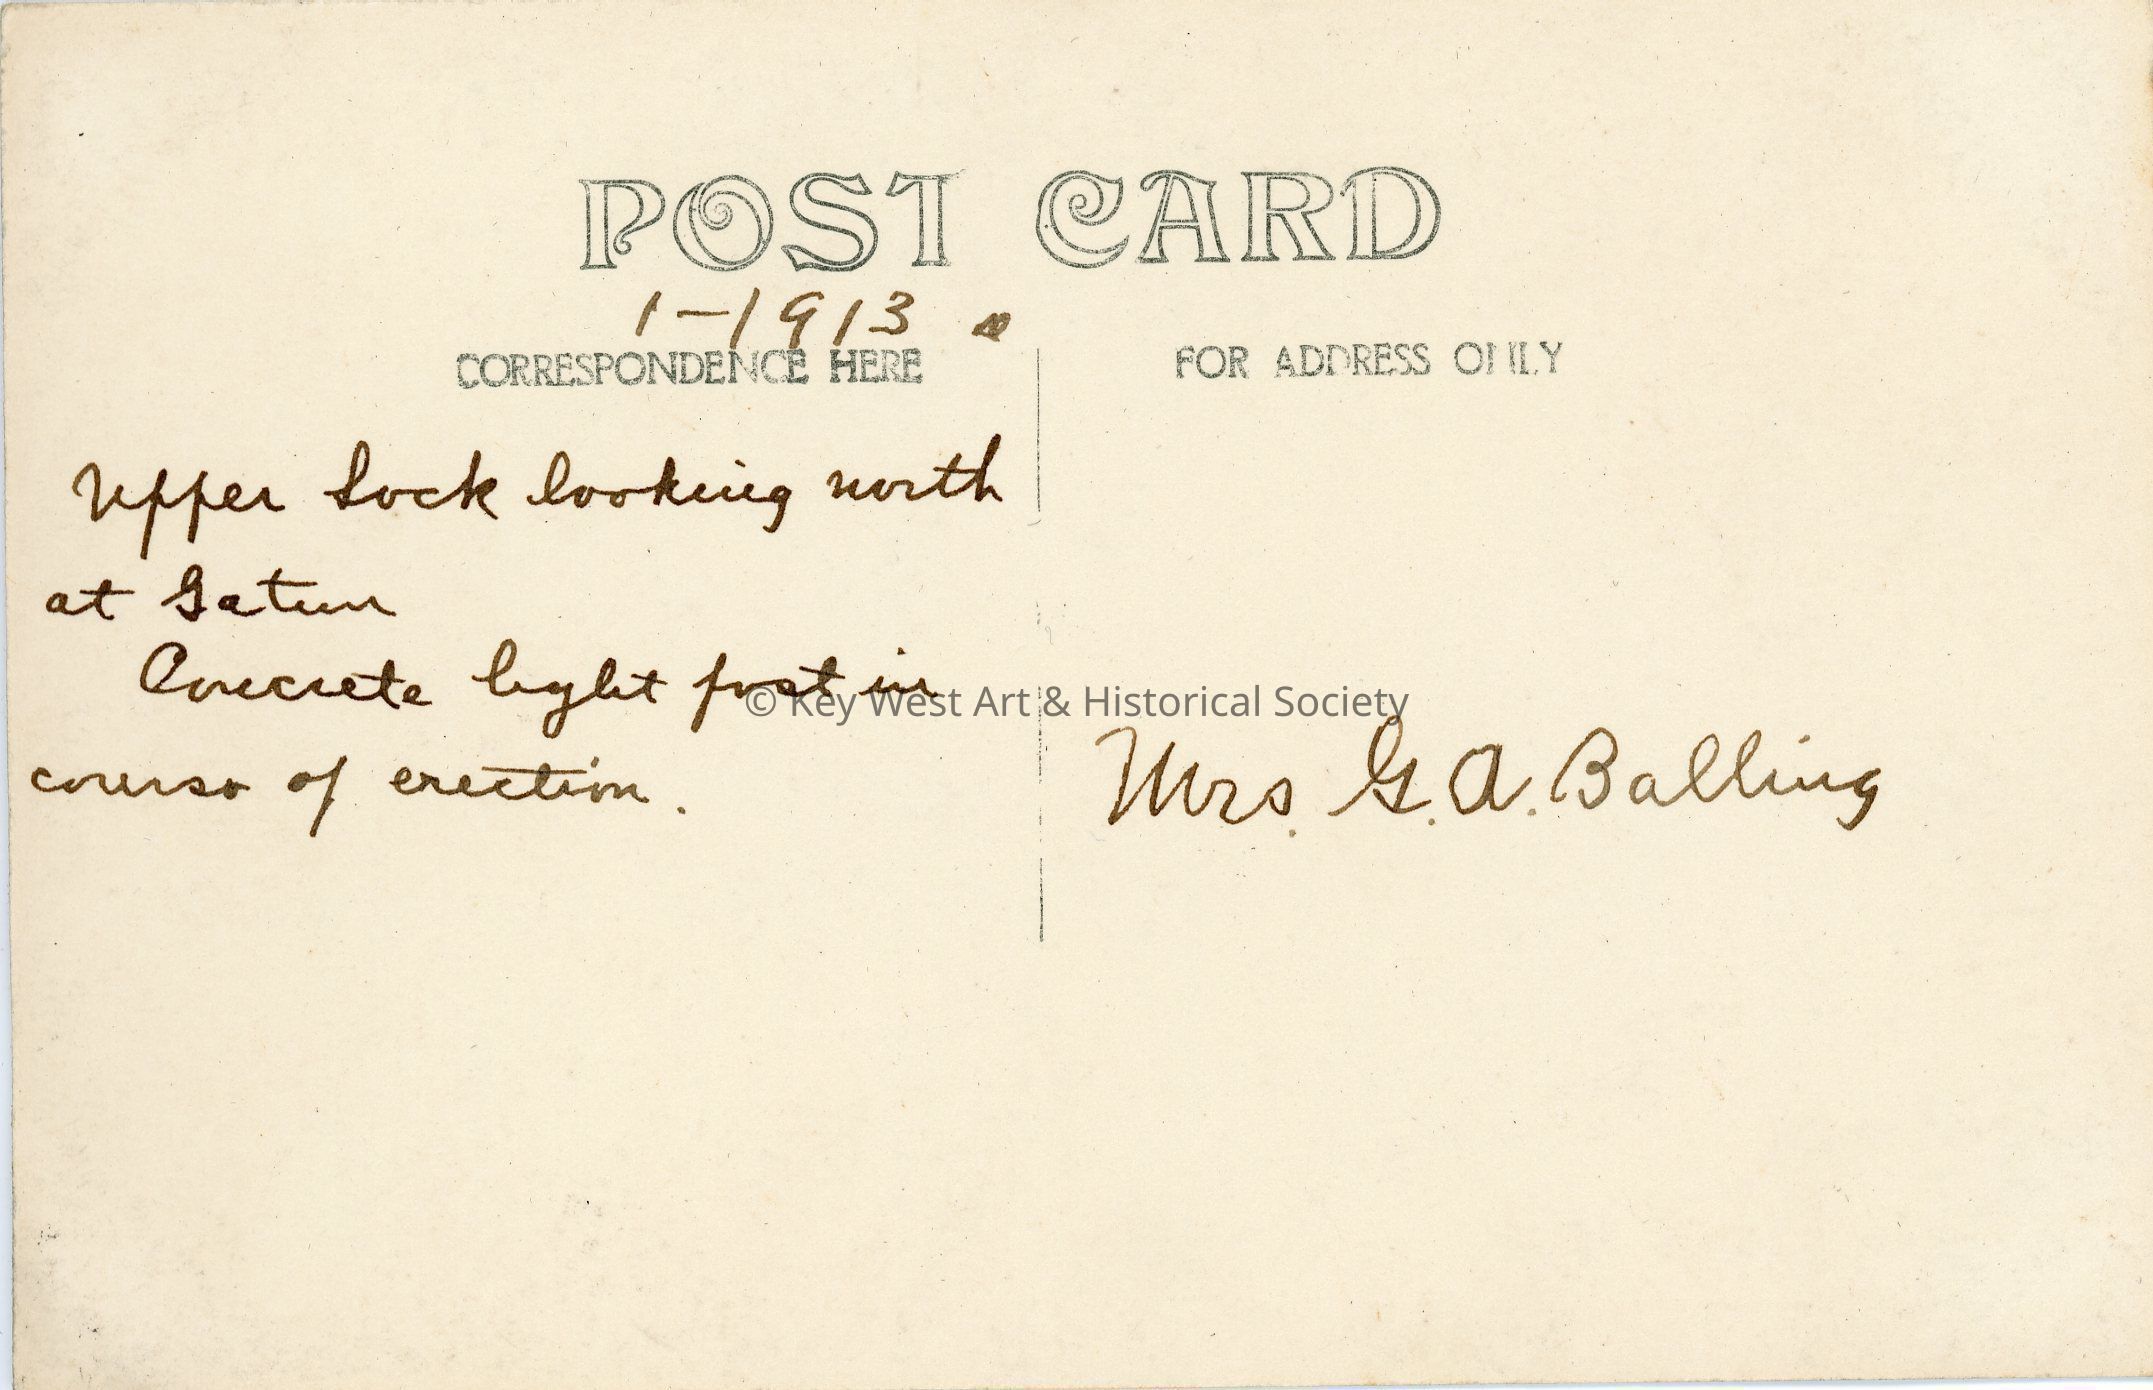 POST CARD
1-1913
CORRESPONDENCE HERE
FOR ADDRESS ONLY
Upper Lock looking north
at Gatun
Concrete light post in
course of erection.
© Key West Art & Historical Society
Mrs. G. A. Balling